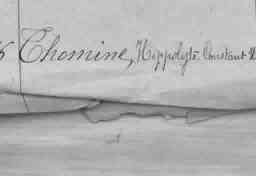 Thomine, Hippolyte Constant